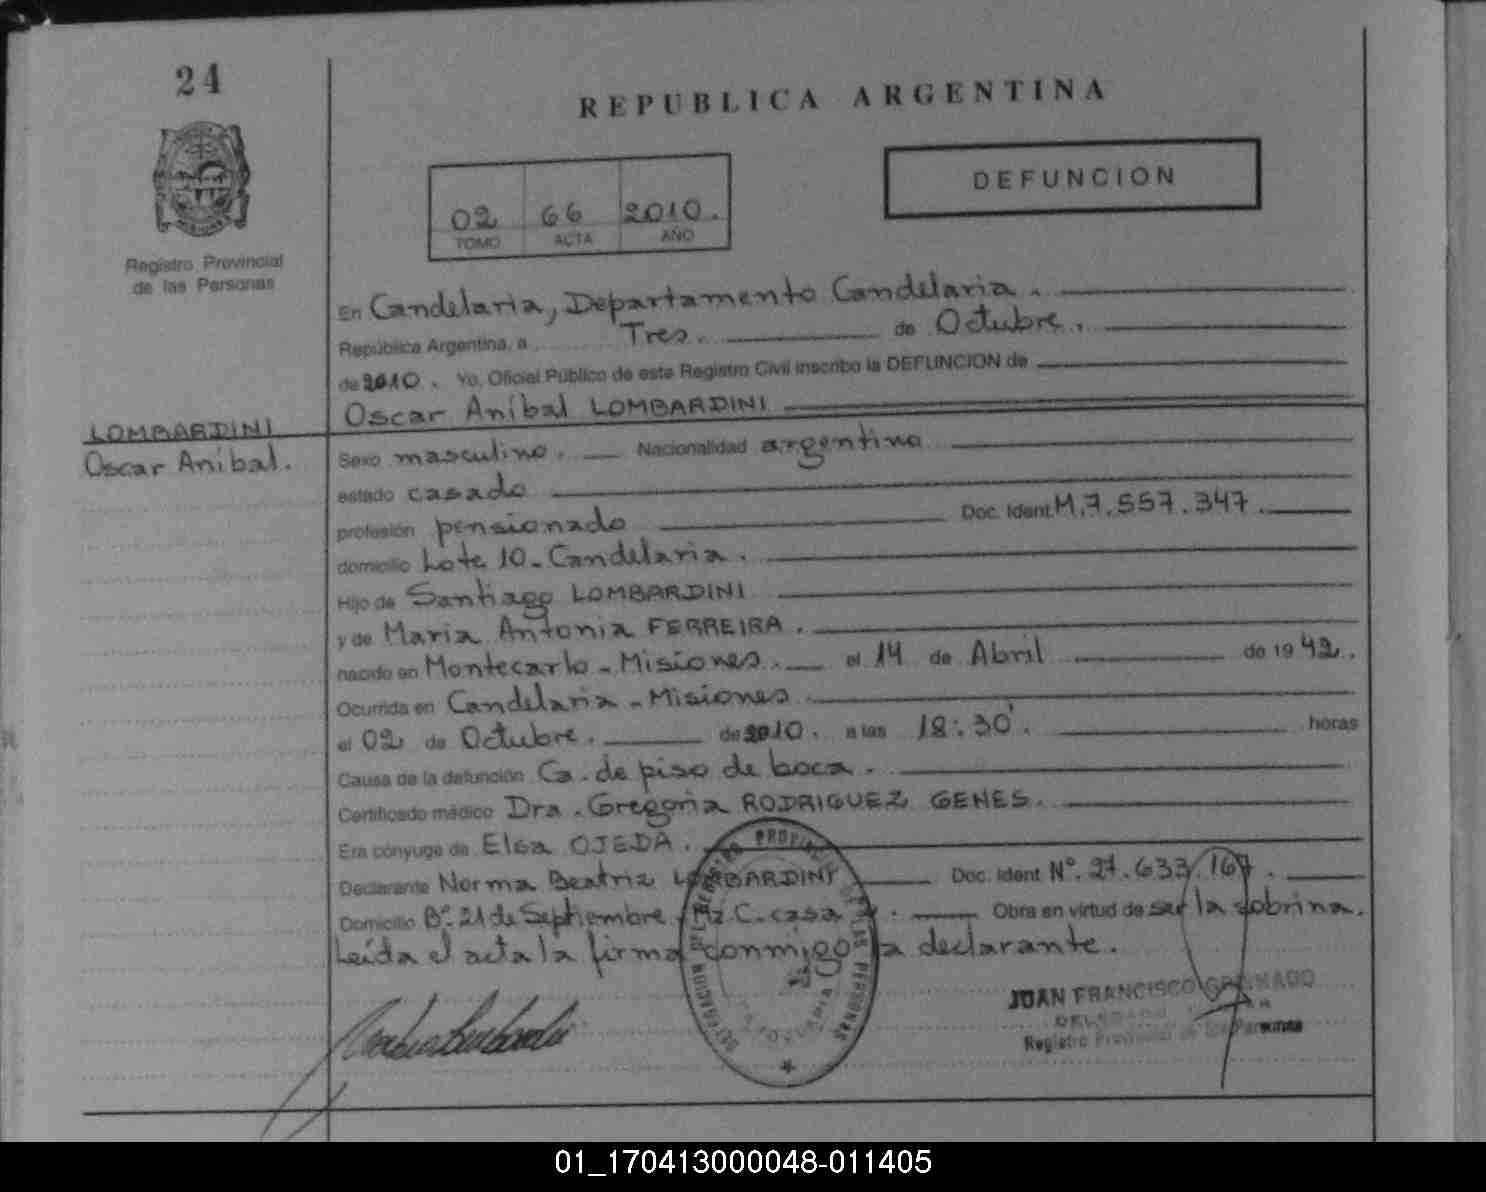 24
REPUBLICA ARGENTINA
DEFUNCION
02 66 2010.
TOMO ACTA AÑO
Registro Provincial
de las Personas
En Candelaria, Departamento Candelaria.
República Argentina, a Tres. de Octubre.
de 2010. Yo, Oficial Público de este Registro Civil inscribo la DEFUNCION de
Oscar Aníbal LOMBARDINI
LOMBARDINI
Oscar Aníbal.
Sexo masculino. Nacionalidad argentina
estado casado
profesión pensionado Doc. Ident. M.7.557.347.
domicilio Lote 10 - Candelaria.
Hijo de Santiago LOMBARDINI
y de María Antonia FERREIRA.
nacido en Montecarlo - Misiones. el 14 de Abril de 1942.
Ocurrida en Candelaria - Misiones
el 02 de Octubre. de 2010. a las 18:30'. horas
Causa de la defunción Ca. de piso de boca.
Certificado médico Dra. Gregoria RODRIGUEZ GENES.
Era cónyuge de Elsa OJEDA.
Declarante Norma Beatriz LOMBARDINI Doc. Ident. N° 27.633.167.
Domicilio B° 21 de Septiembre - Mz C - casa Obra en virtud de ser la sobrina.
Leída el acta la firma conmigo la declarante.
JUAN FRANCISCO
DELEGADO
Registro Provincial de las Personas
01_170413000048-011405